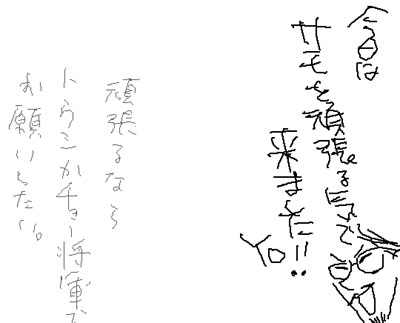 今日は
サモを頑張る気で
来ました!!
YO
頑張るなら
トラミかチキー将軍で
お願いしたい。